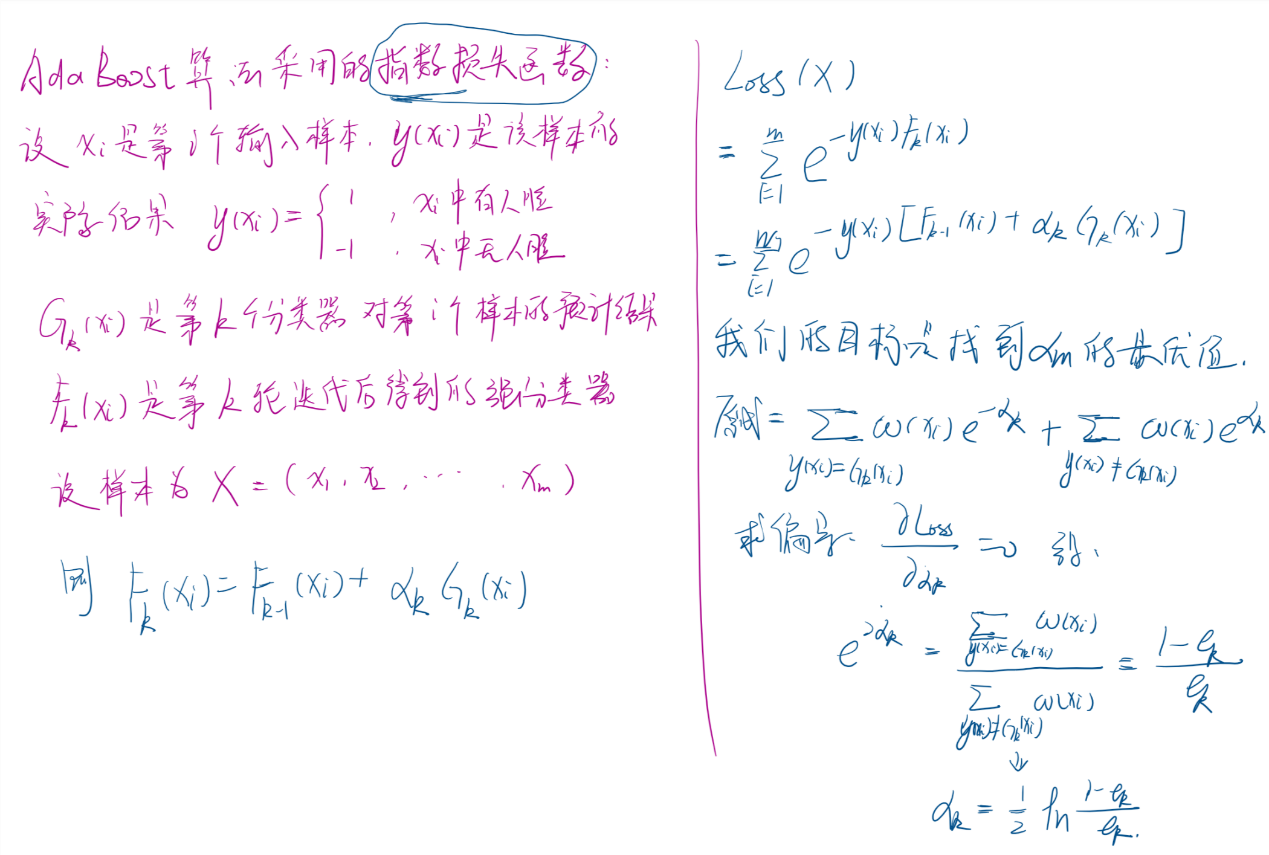 AdaBoost算法采用的指数损失函数:
设 xi是第i个输入样本, y(xi)是该样本的
实际结果 y(xi)={ 1 , xi中有人脸
-1 , xi中无人脸
Gk(xi)是第k个分类器对第i个样本的预计结果
Fk(xi)是第k轮迭代后得到的强分类器
设样本为 X=(x1, x2, ⋯ , xm)
则 Fk(xi)=Fk-1(xi)+ αk Gk(xi)
Loss(X)
= ∑_{i=1}^{m} e^{-y(xi)Fk(xi)}
= ∑_{i=1}^{m} e^{-y(xi)[Fk-1(xi)+αkGk(xi)]}
我们的目标是找到αm的最优值.
原式= ∑_{y(xi)=Gk(xi)} ω(xi)e^{-αk} + ∑_{y(xi)≠Gk(xi)} ω(xi)e^{αk}
求偏导. ∂Loss/∂αk =0 得.
e^{2αk} = ∑_{y(xi)=Gk(xi)} ω(xi) / ∑_{y(xi)≠Gk(xi)} ω(xi) = (1-ek)/ek
↓
αk = 1/2 ln (1-ek)/ek.